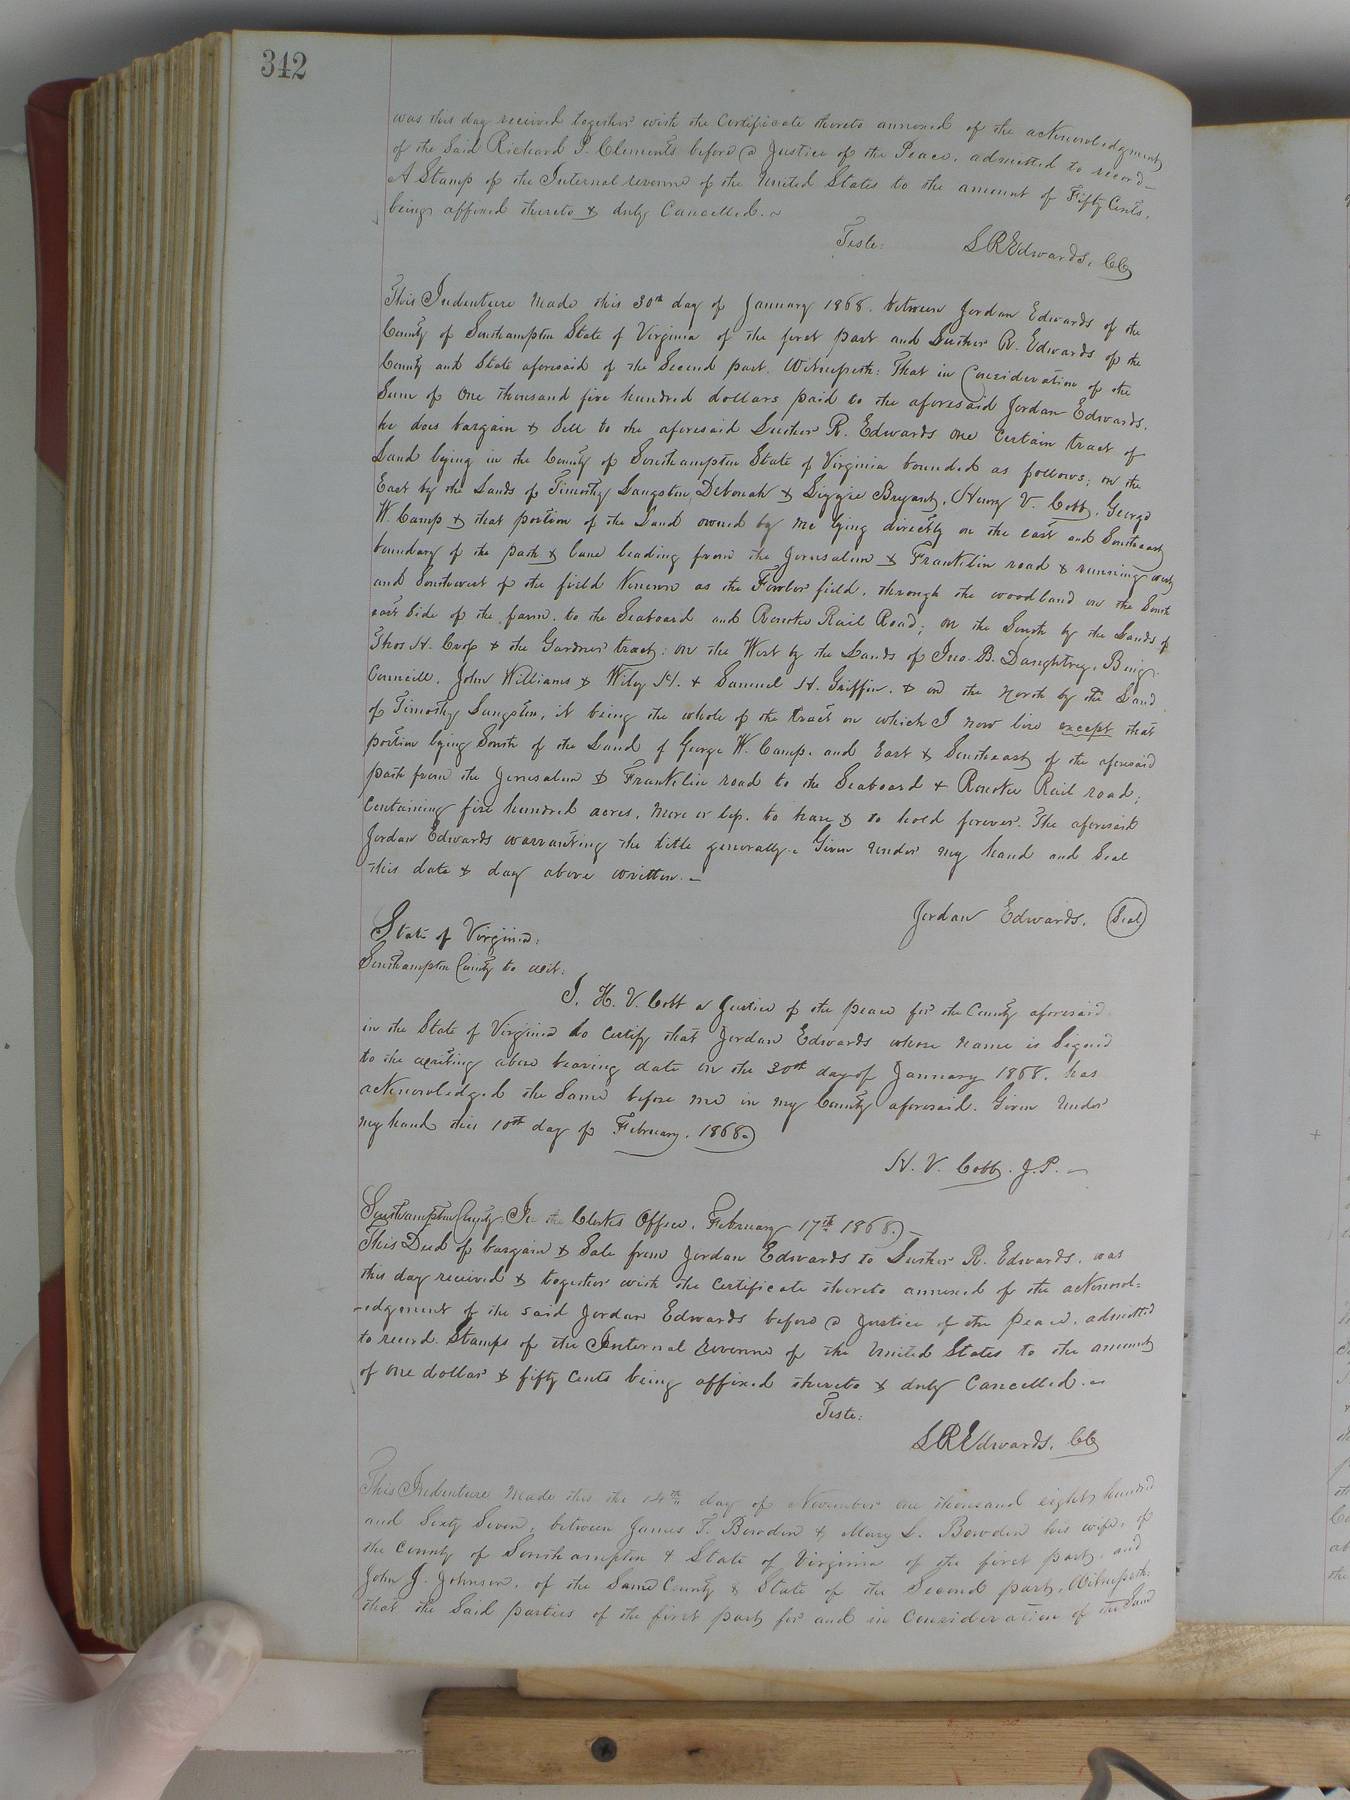 342
was this day received together with the Certificate thereto annexed of the acknowledgment
of the Said Richard P. Clements before a Justice of the Peace, admitted to record—
A Stamp of the Internal revenue of the United States to the amount of Fifty Cents,
being affixed thereto & duly Cancelled.~
Teste: L R Edwards, CC
This Indenture Made this 30th day of January 1868. between Jordan Edwards of the
County of Southampton State of Virginia of the first part and Luther R. Edwards of the
County and State aforesaid of the Second part, Witnesseth: That in Consideration of the
Sum of One thousand five hundred dollars paid to the aforesaid Jordan Edwards.
he does bargain & Sell to the aforesaid Luther R. Edwards one Certain tract of
Land lying in the County of Southampton State of Virginia bounded as follows; on the
East by the Lands of Timothy Langston, Deborah & Siggie Bryant, Henry V. Cobb, George
W. Camp & that portion of the Land owned by me lying directly on the east and Southeast
boundary of the path & lane leading from the Jerusalem & Franklin road & running west
and Southwest of the field Known as the Fowler field, through the woodland on the South
east Side of the farm, to the Seaboard and Roanoke Rail Road; on the South by the Lands of
Thos H. & the Gardner tract: on the West by the Lands of Jno. B. Daughtrey, Benj.
Councill, John Williams & Wiley H. & Samuel H. Griffin, & on the North by the Land
of Timothy Langston, it being the whole of the tract on which I now live except that
portion lying South of the Land of George W. Camp. and East & Southeast of the aforesaid
path from the Jerusalem & Franklin road to the Seaboard & Roanoke Rail road;
Containing five hundred acres, more or less. to have & to hold forever. The aforesaid
Jordan Edwards warranting the title generally. Given under my hand and Seal
this date & day above written.—
Jordan Edwards. (Seal)
State of Virginia:
Southampton County to wit:
I, H. V. Cobb a Justice of the peace for the County aforesaid
in the State of Virginia do Certify that Jordan Edwards whose name is Signed
to the writing above bearing date on the 30th day of January 1868. has
acknowledged the Same before me in my County aforesaid. Given under
my hand this 10th day of February, 1868.)
H. V. Cobb. J.P.—
Southampton County: In the Clerks Office, February 17th 1868.)—
This Deed of bargain & Sale from Jordan Edwards to Luther R. Edwards, was
this day received & together with the certificate thereto annexed of the acknowl=
-edgment of the said Jordan Edwards before a Justice of the peace, admitted
to record. Stamps of the Internal revenue of the United States to the amount
of one dollar & fifty cents being affixed thereto & duly Cancelled.~
Teste:
L R Edwards, CC
This Indenture Made this the 14th day of November one thousand eight hundred
and Sixty Seven, between James T. Bowden & Mary L. Bowden his wife, of
the County of Southampton & State of Virginia of the first part, and
John J. Johnson, of the Same County & State of the Second part, Witnesseth:
that the Said parties of the first part for and in Consideration of the Sum